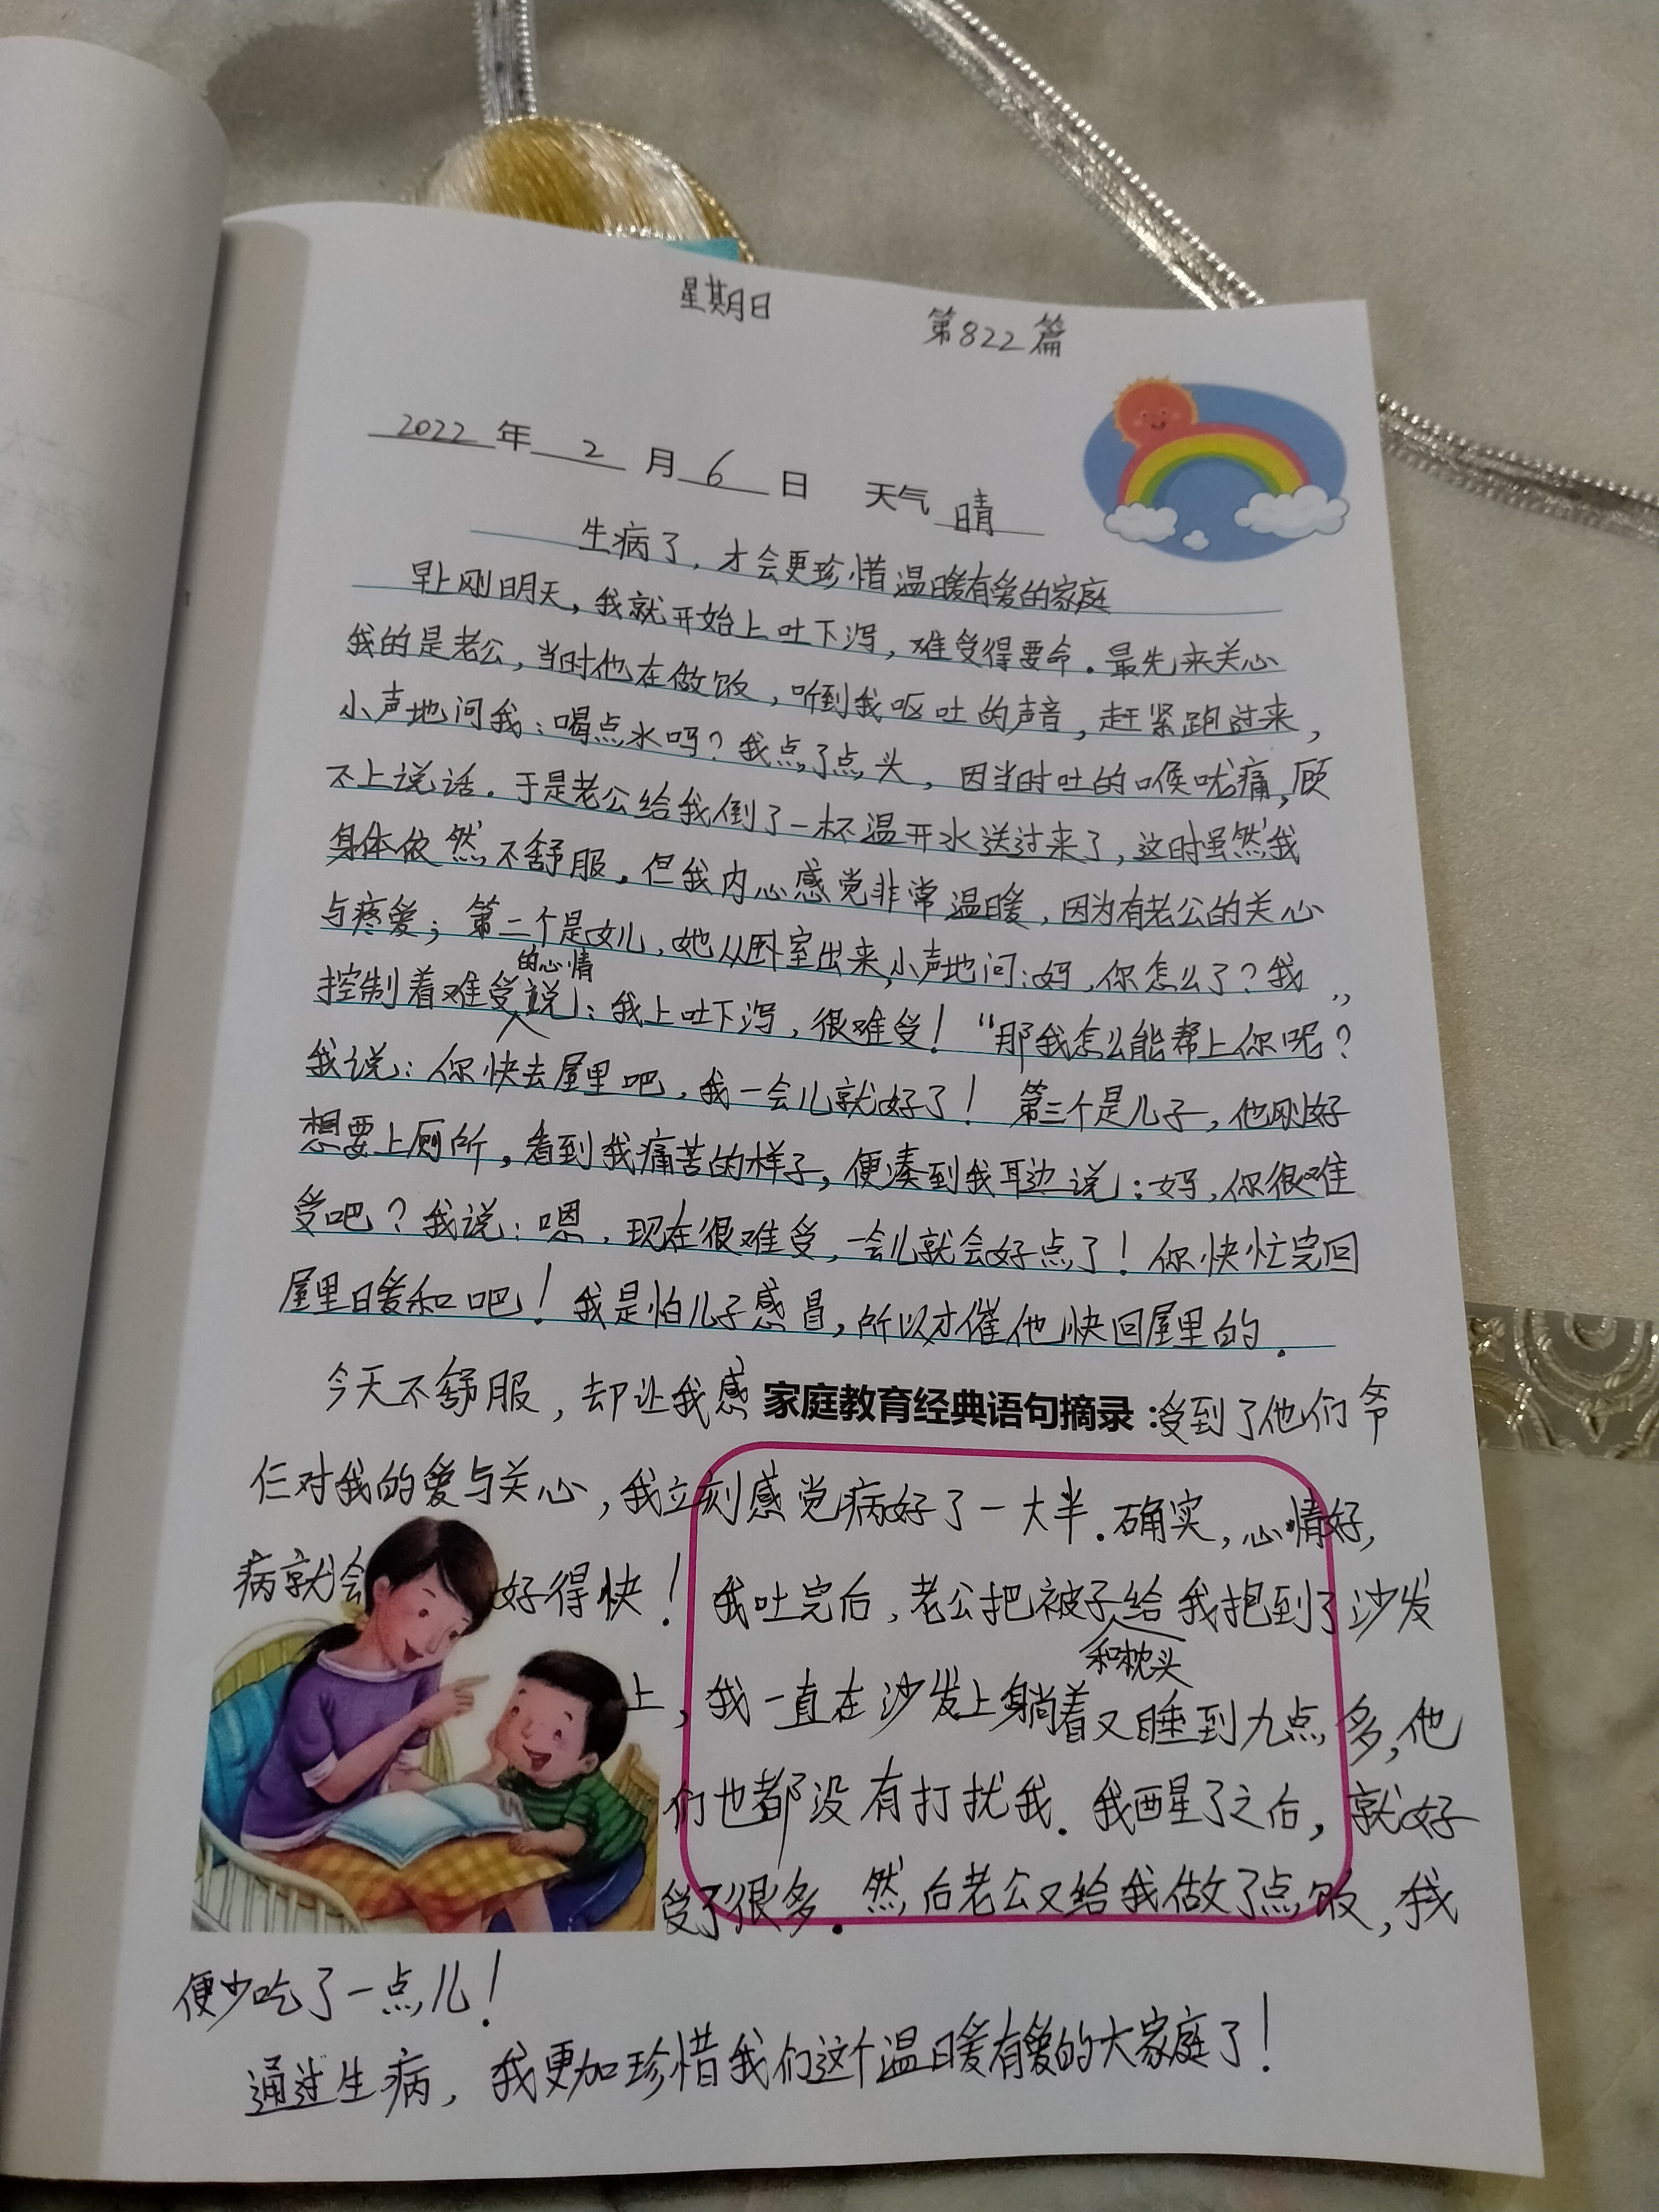 星期日 第822篇
2022年2月6日 天气晴
生病了，才会更珍惜温暖有爱的家庭
早上刚明天，我就开始上吐下泻，难受得要命．最先来关心
我的是老公，当时他在做饭，听到我呕吐的声音，赶紧跑过来，
小声地问我：喝点水吗？我点了点头，因当时吐的喉咙痛，顾
不上说话．于是老公给我倒了一杯温开水送过来了，这时虽然我
身体依然不舒服．但我内心感觉非常温暖，因为有老公的关心
与疼爱；第二个是女儿，她从卧室出来，小声地问：妈，你怎么了？我
的心情
控制着难受说：我上吐下泻，很难受！“那我怎么能帮上你呢？”
我说：你快去屋里吧，我一会儿就好了！第三个是儿子，他刚好
想要上厕所，看到我痛苦的样子，便凑到我耳边说：妈，你很难
受吧？我说：嗯，现在很难受，一会儿就会好点了！你快忙完回
屋里暖和吧！我是怕儿子感冒，所以才催他快回屋里的．
今天不舒服，却让我感 家庭教育经典语句摘录：受到了他们爷
仨对我的爱与关心，我立刻感觉病好了一大半．确实，心情好，
病就会好得快！我吐完后，老公把被子给我抱到了沙发
和枕头
上，我一直在沙发上躺着又睡到九点多，他
们也都没有打扰我．我醒了之后，就好
受了很多．然后老公又给我做了点饭，我
便少吃了一点儿！
通过生病，我更加珍惜我们这个温暖有爱的大家庭了！